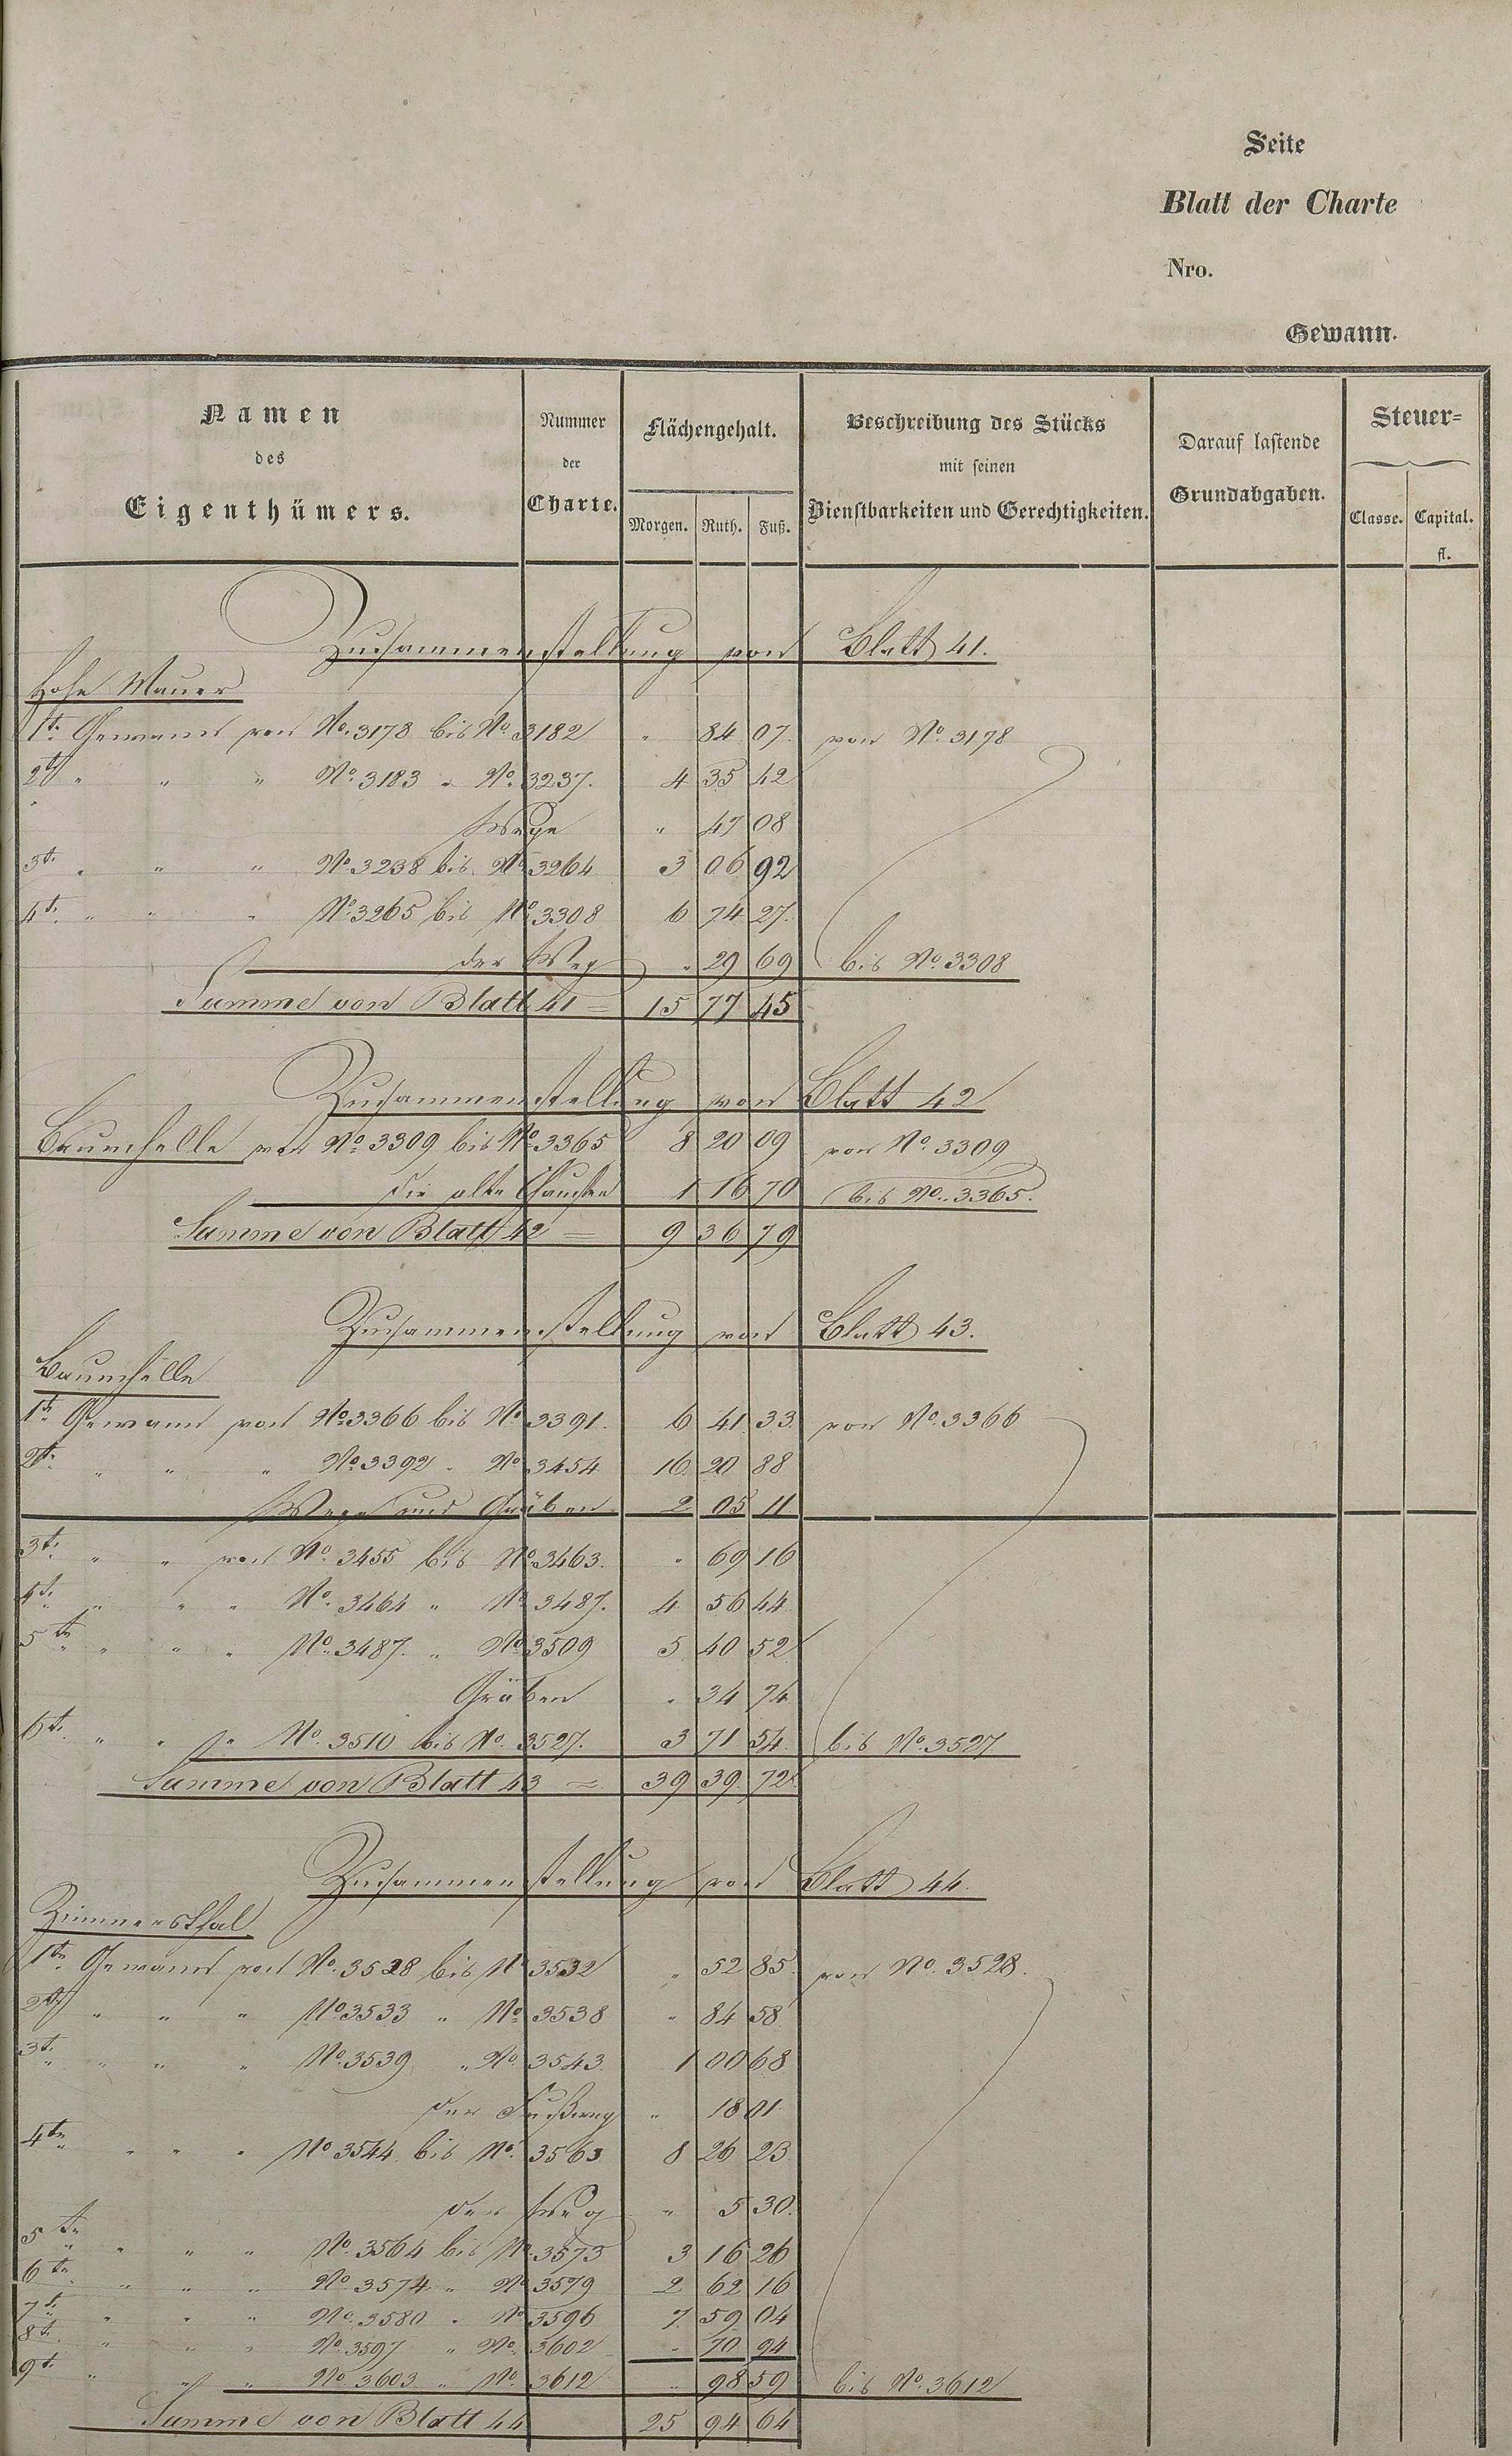 Seite
Blatt der Charte
Nro.
Gewann.
Namen des Eigenthümers. Nummer der Charte. Flächengehalt. Morgen. Ruth. Fuß. Beschreibung des Stücks mit seinen Dienstbarkeiten und Gerechtigkeiten. Darauf lastende Grundabgaben. Steuer= Classe. Capital. fl.
Zusammenstellung von Blatt 41.
Hohe Mauer
1te. Gewann von No. 3178 bis No. 3182 " 84 07. von No. 3178
2te " " " No. 3183 " No. 3237. 4 35 42
Wege " 47 08
3te. " " " No. 3238 bis No. 3264 3 06 92
4te. " " " No. 3265 bis No. 3308 6 74 27.
der Weg " 29 69 bis No. 3308
Summe von Blatt 41 = 15 77 45
Zusammenstellung von Blatt 42
Baumhelle von No. 3309 bis No. 3365 8 20 09 von No. 3309
die alte Chaussee 1 16 70 bis No. 3365.
Summe von Blatt 42 = 9 36 79
Zusammenstellung von Blatt 43.
Baumhelle
1te. Gewann von No. 3366 bis No. 3391. 6 41 33. von No. 3366
2te. " " " No. 3392 " No. 3454 16 20 88
Wege und Gräben 2 05 11
3te. " " von No. 3455 bis No. 3463. " 69 16
4te. " " " No. 3464 " No. 3487. 4 56 44.
5te " " " No. 3487. " No. 3509 5 40 52
Gräben " 34 74
6te. " " " No. 3510 bis No. 3527. 3 71 54. bis No. 3527
Summe von Blatt 43 = 39 39 72
Zusammenstellung von Blatt 44.
Zimmersthal
1te. Gewann von No. 3528 bis No. 3532 " 52 85. von No. 3528.
2te " " " No. 3533 " No. 3538 " 84 58
3te. " " " No. 3539 " No. 3543. 1 00 68
der Fußweg " 18 01
4te " " " No. 3544 bis No. 3563 8 26 23
der Weg " 5 30.
5te " " " No. 3564 bis No. 3573 3 16 26
6te " " " No. 3574 " No. 3579 2 62 16
7te. " " " No. 3580 " No. 3596 7. 59 04
8te. " " " No. 3597 " No. 3602 " 70 94
9te. " " " No. 3603 " No. 3612 " 98 59 bis No. 3612
Summe von Blatt 44 25 94 64